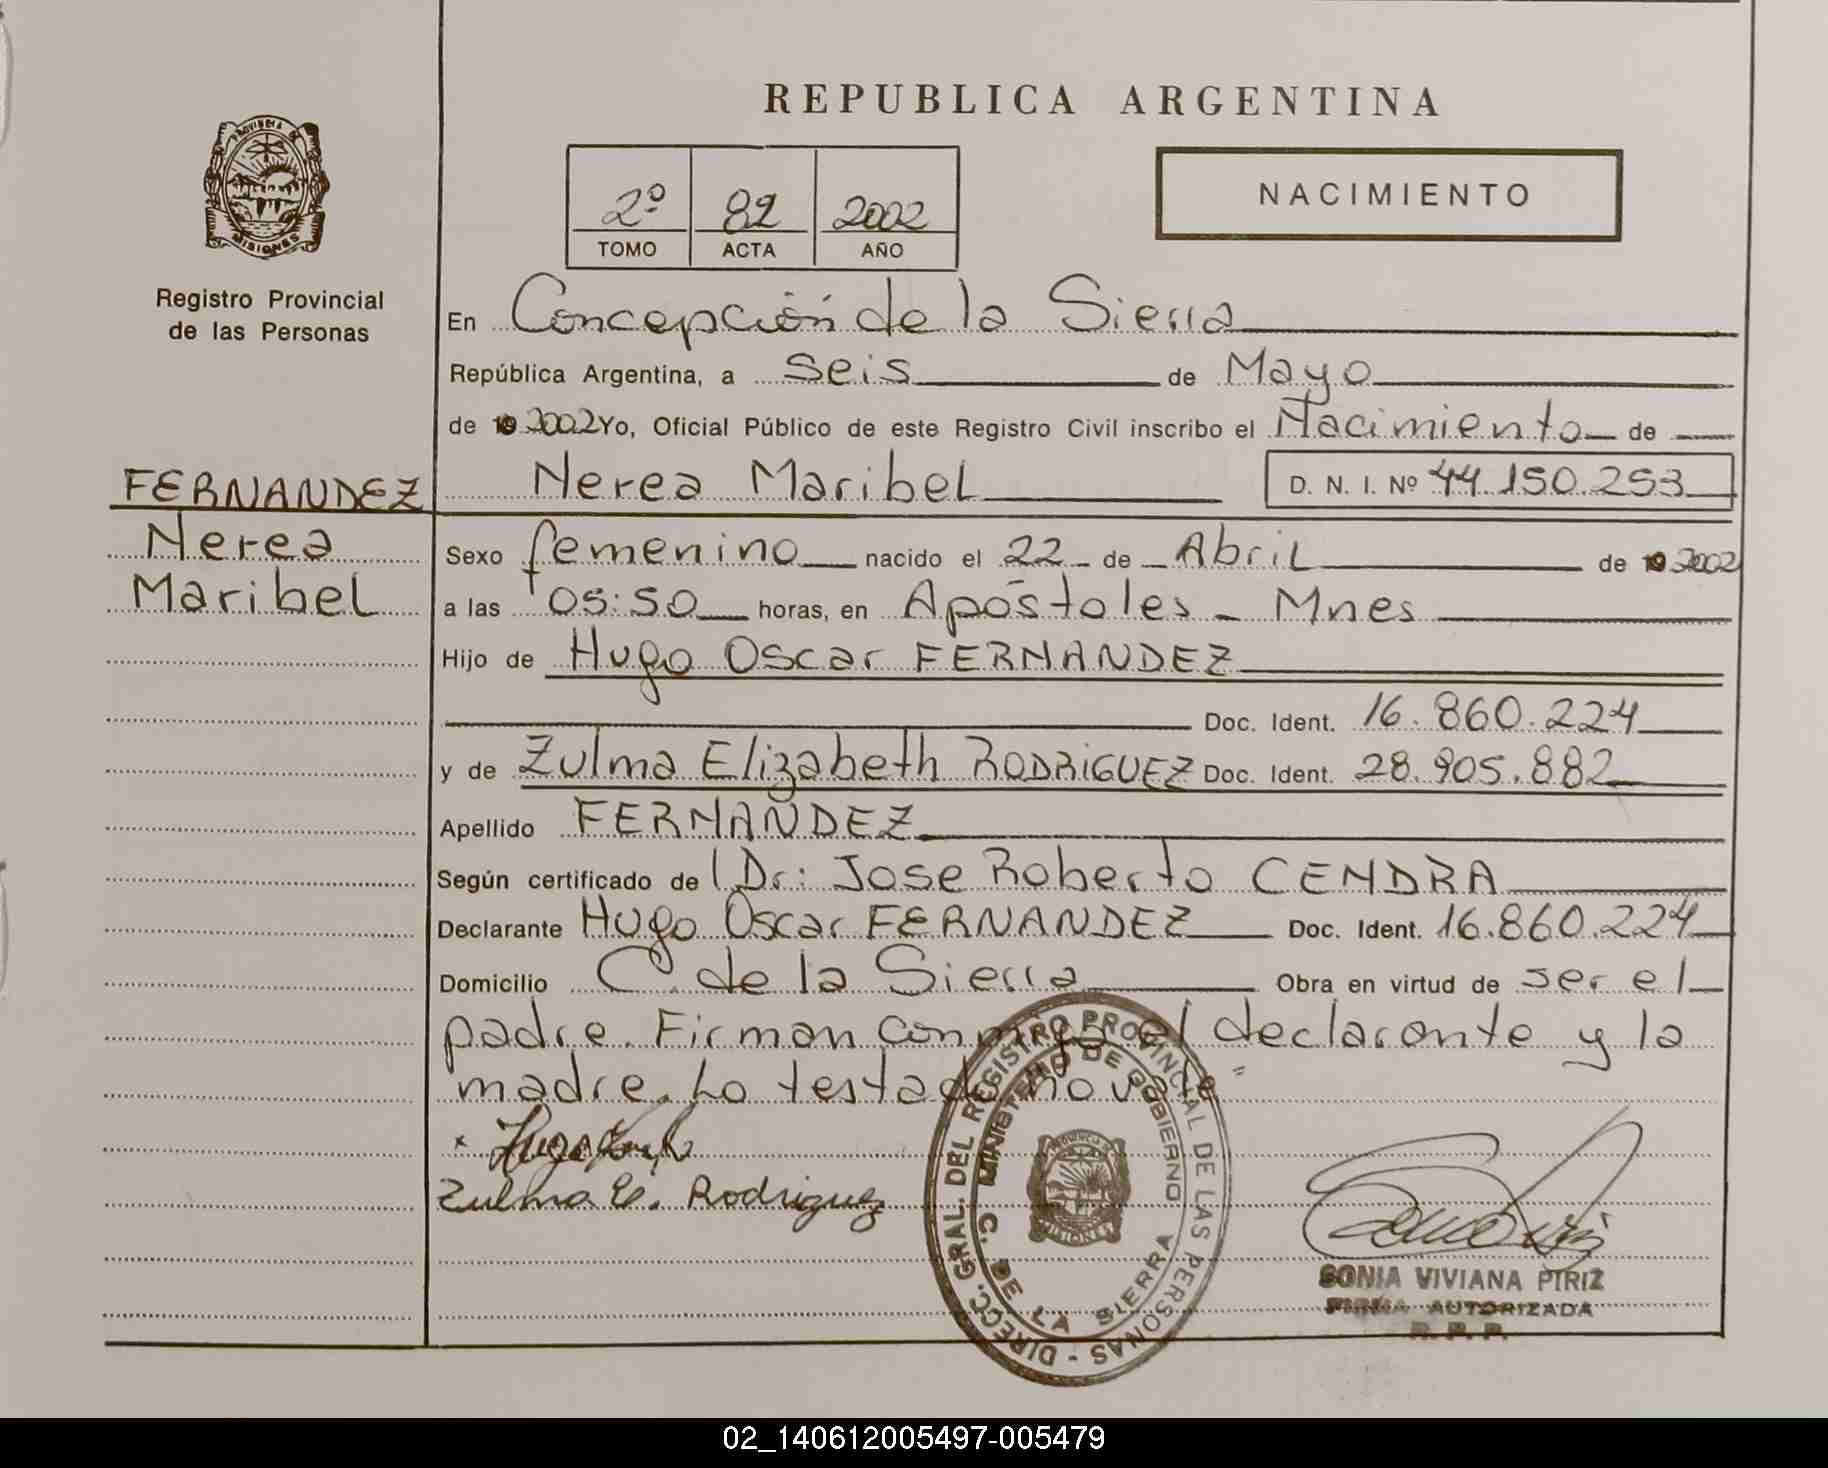 REPUBLICA ARGENTINA
PROVINCIA DE
MISIONES
Registro Provincial
de las Personas
2º 82 2002
TOMO ACTA AÑO
NACIMIENTO
En Concepción de la Sierra
República Argentina, a seis de Mayo
de 19 2002 Yo, Oficial Público de este Registro Civil inscribo el Nacimiento de
FERNANDEZ
Nerea
Maribel
Nerea Maribel D. N. I. Nº 44.150.253
Sexo femenino nacido el 22 de Abril de 19 2002
a las 05:50 horas, en Apóstoles - Mnes
Hijo de Hugo Oscar FERNANDEZ
Doc. Ident. 16.860.224
y de Zulma Elizabeth RODRIGUEZ Doc. Ident. 28.905.882
Apellido FERNANDEZ
Según certificado de Dr: Jose Roberto CENDRA
Declarante Hugo Oscar FERNANDEZ Doc. Ident. 16.860.224
Domicilio C. de la Sierra Obra en virtud de ser el
padre. Firman conmigo el declarante y la
madre. Lo testado no vale
Zulma E. Rodriguez
DIRECC. GRAL. DEL REGISTRO PROVINCIAL DE LAS PERSONAS -
MINISTERIO DE GOBIERNO
C. DE LA SIERRA
PROVINCIA DE
MISIONES
SONIA VIVIANA PIRIZ
FIRMA AUTORIZADA
R. P. P.
02_140612005497-005479